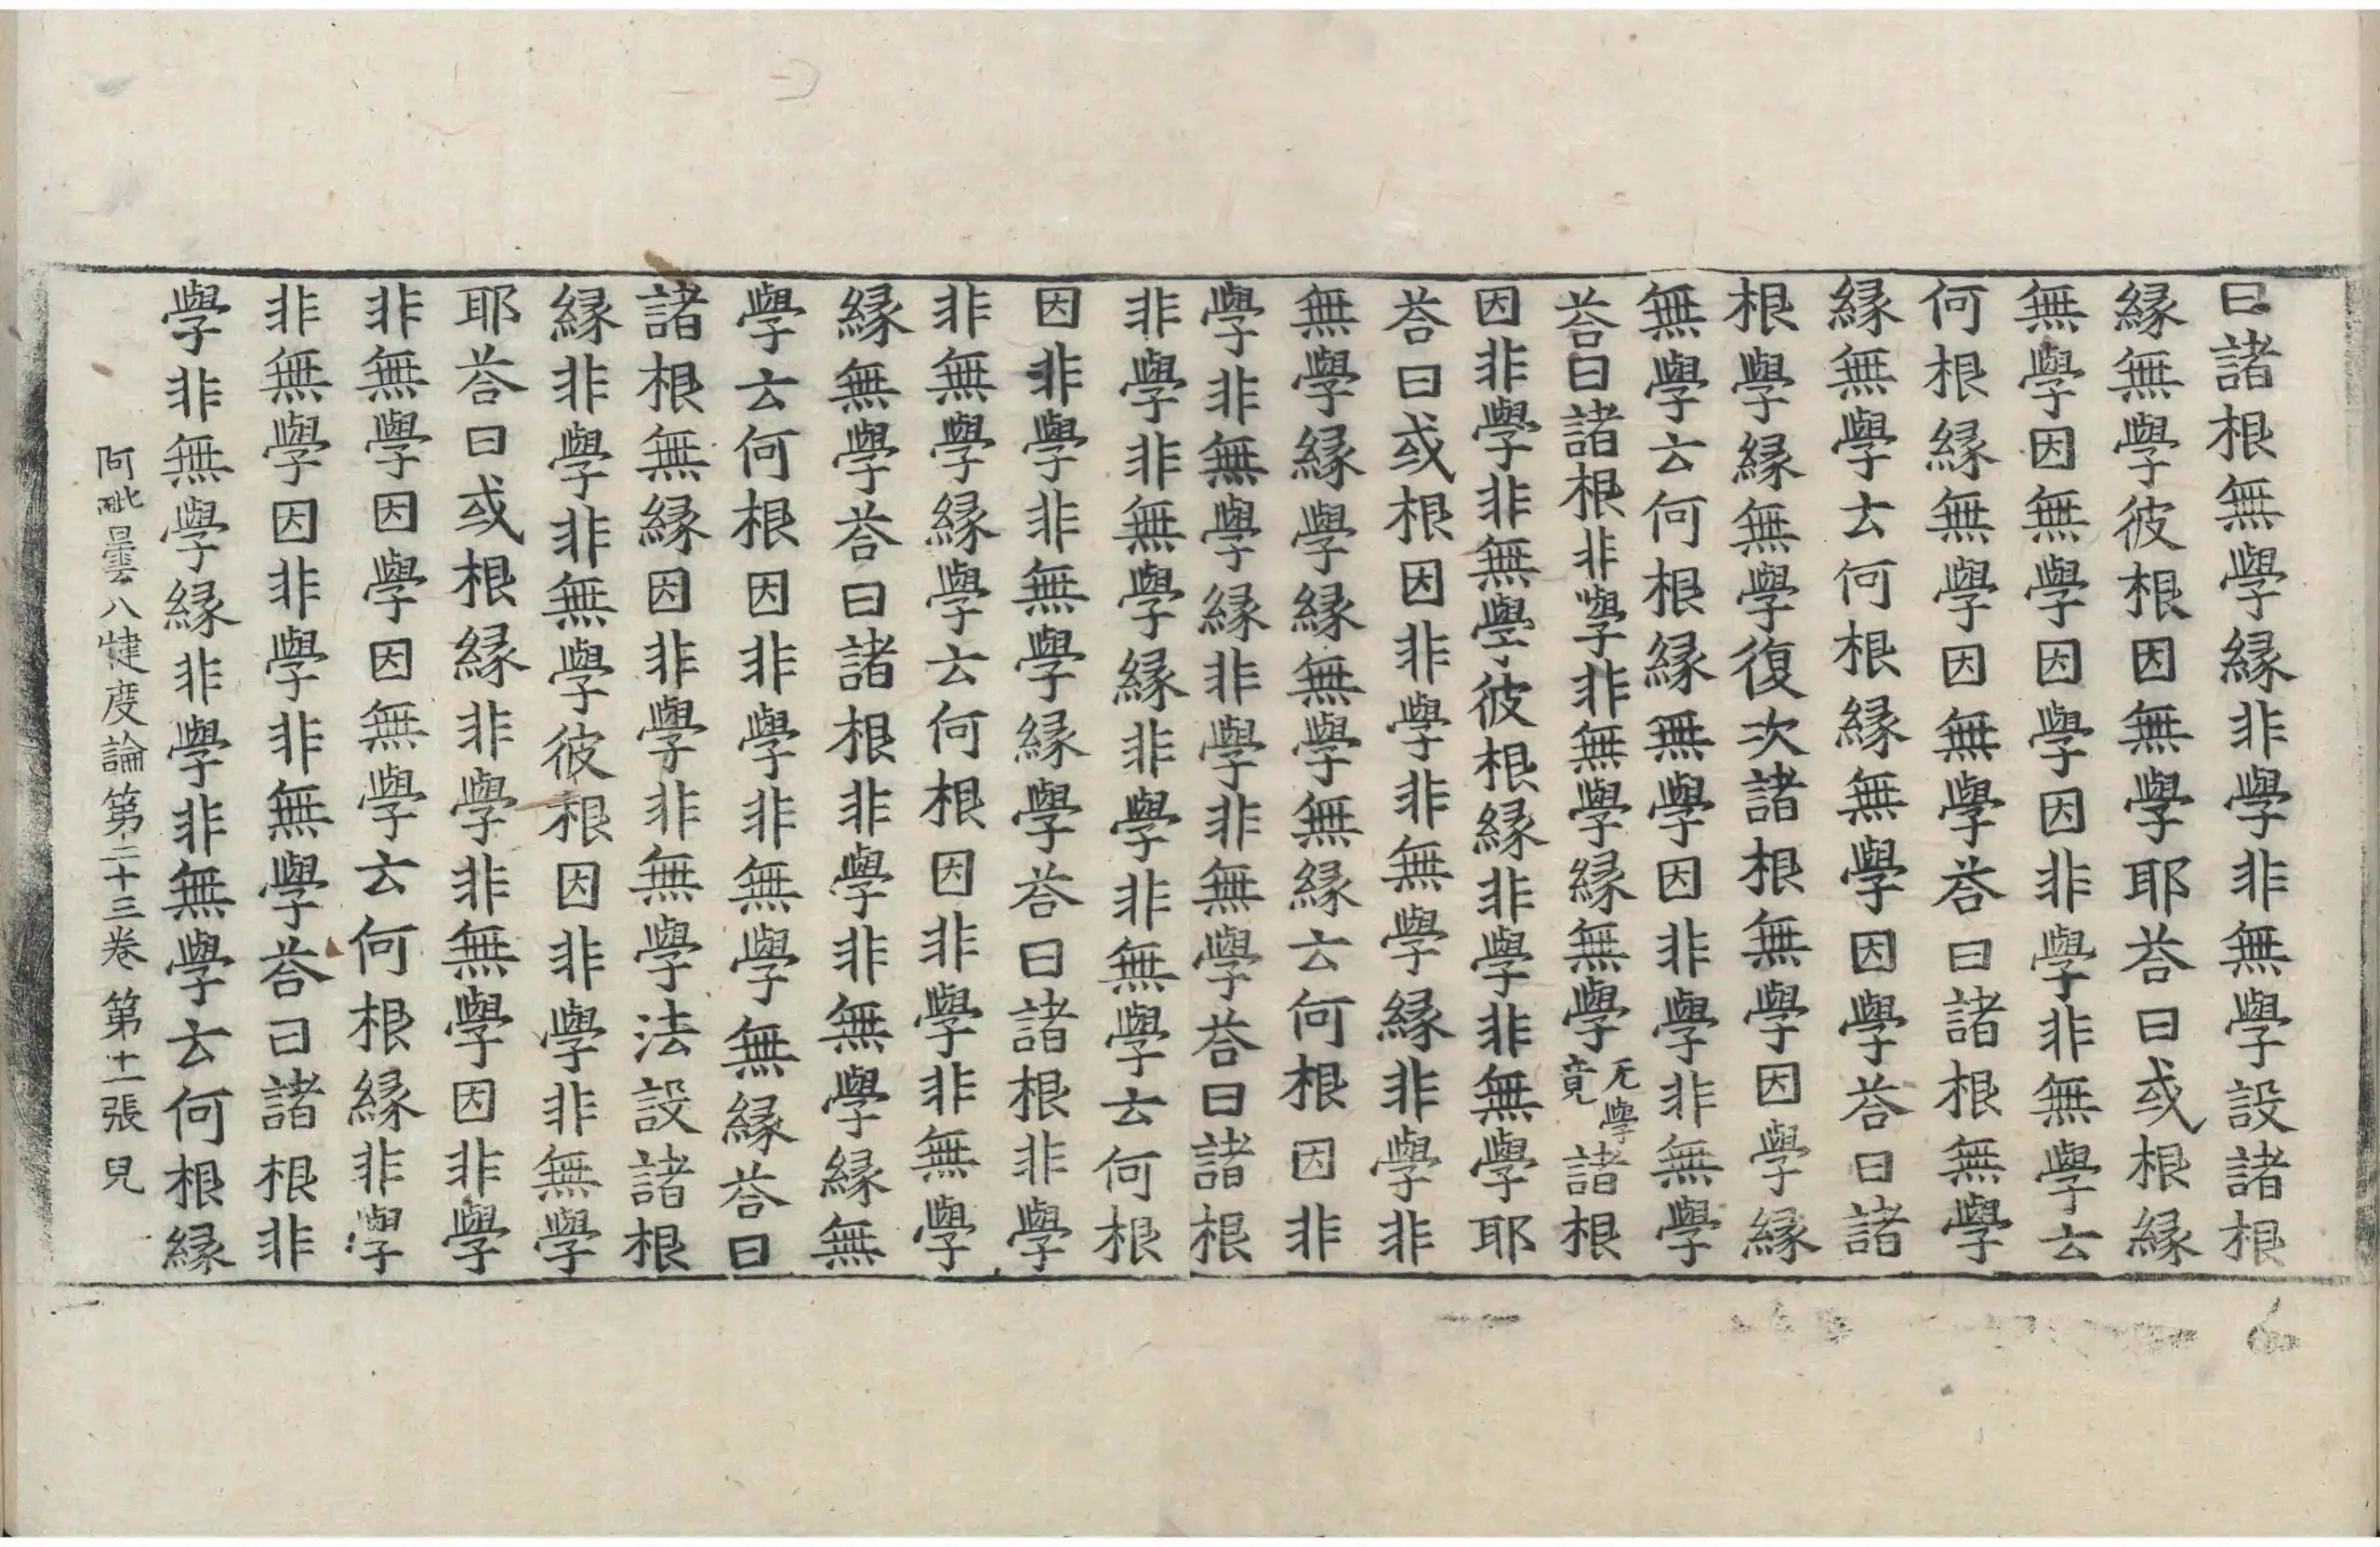 曰諸根無學緣非學非無學設諸根
緣無學彼根因無學耶荅曰或根緣
無學因無學因學因非學非無學云
何根緣無學因無學荅曰諸根無學
緣無學云何根緣無學因學荅曰諸
根學緣無學復次諸根無學因學緣
無學云何根緣無學因非學非無學
荅曰諸根非學非無學緣無學无學竟諸根
因非學非無學彼根緣非學非無學耶
荅曰或根因非學非無學緣非學非
無學緣學緣無學無緣云何根因非
學非無學緣非學非無學荅曰諸根
非學非無學緣非學非無學云何根
因非學非無學緣學荅曰諸根非學
非無學緣學云何根因非學非無學
緣無學荅曰諸根非學非無學緣無
學云何根因非學非無學無緣荅曰
諸根無緣因非學非無學法設諸根
緣非學非無學彼根因非學非無學
耶荅曰或根緣非學非無學因非學
非無學因學因無學云何根緣非學
非無學因非學非無學荅曰諸根非
學非無學緣非學非無學云何根緣
阿毗曇八犍度論第二十三卷 第十一張 兒